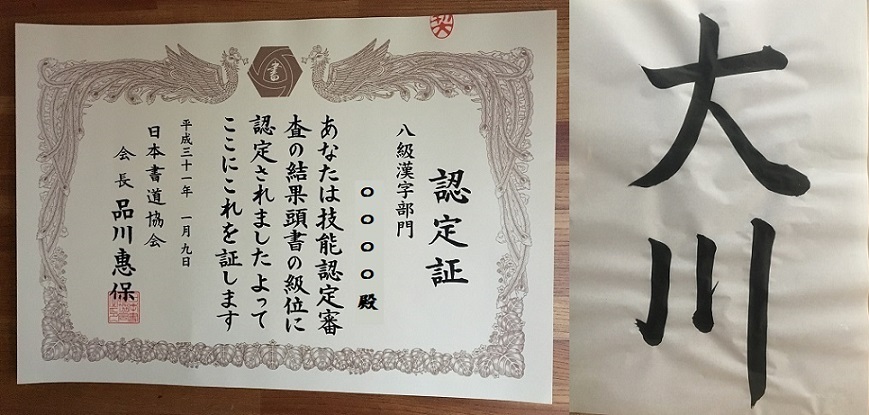 書
認定証
八級漢字部門
○○○○殿
あなたは技能認定審
査の結果頭書の級位に
認定されましたよって
ここにこれを証します
平成三十一年 一月九日
日本書道協会
会長 品川惠保
大川